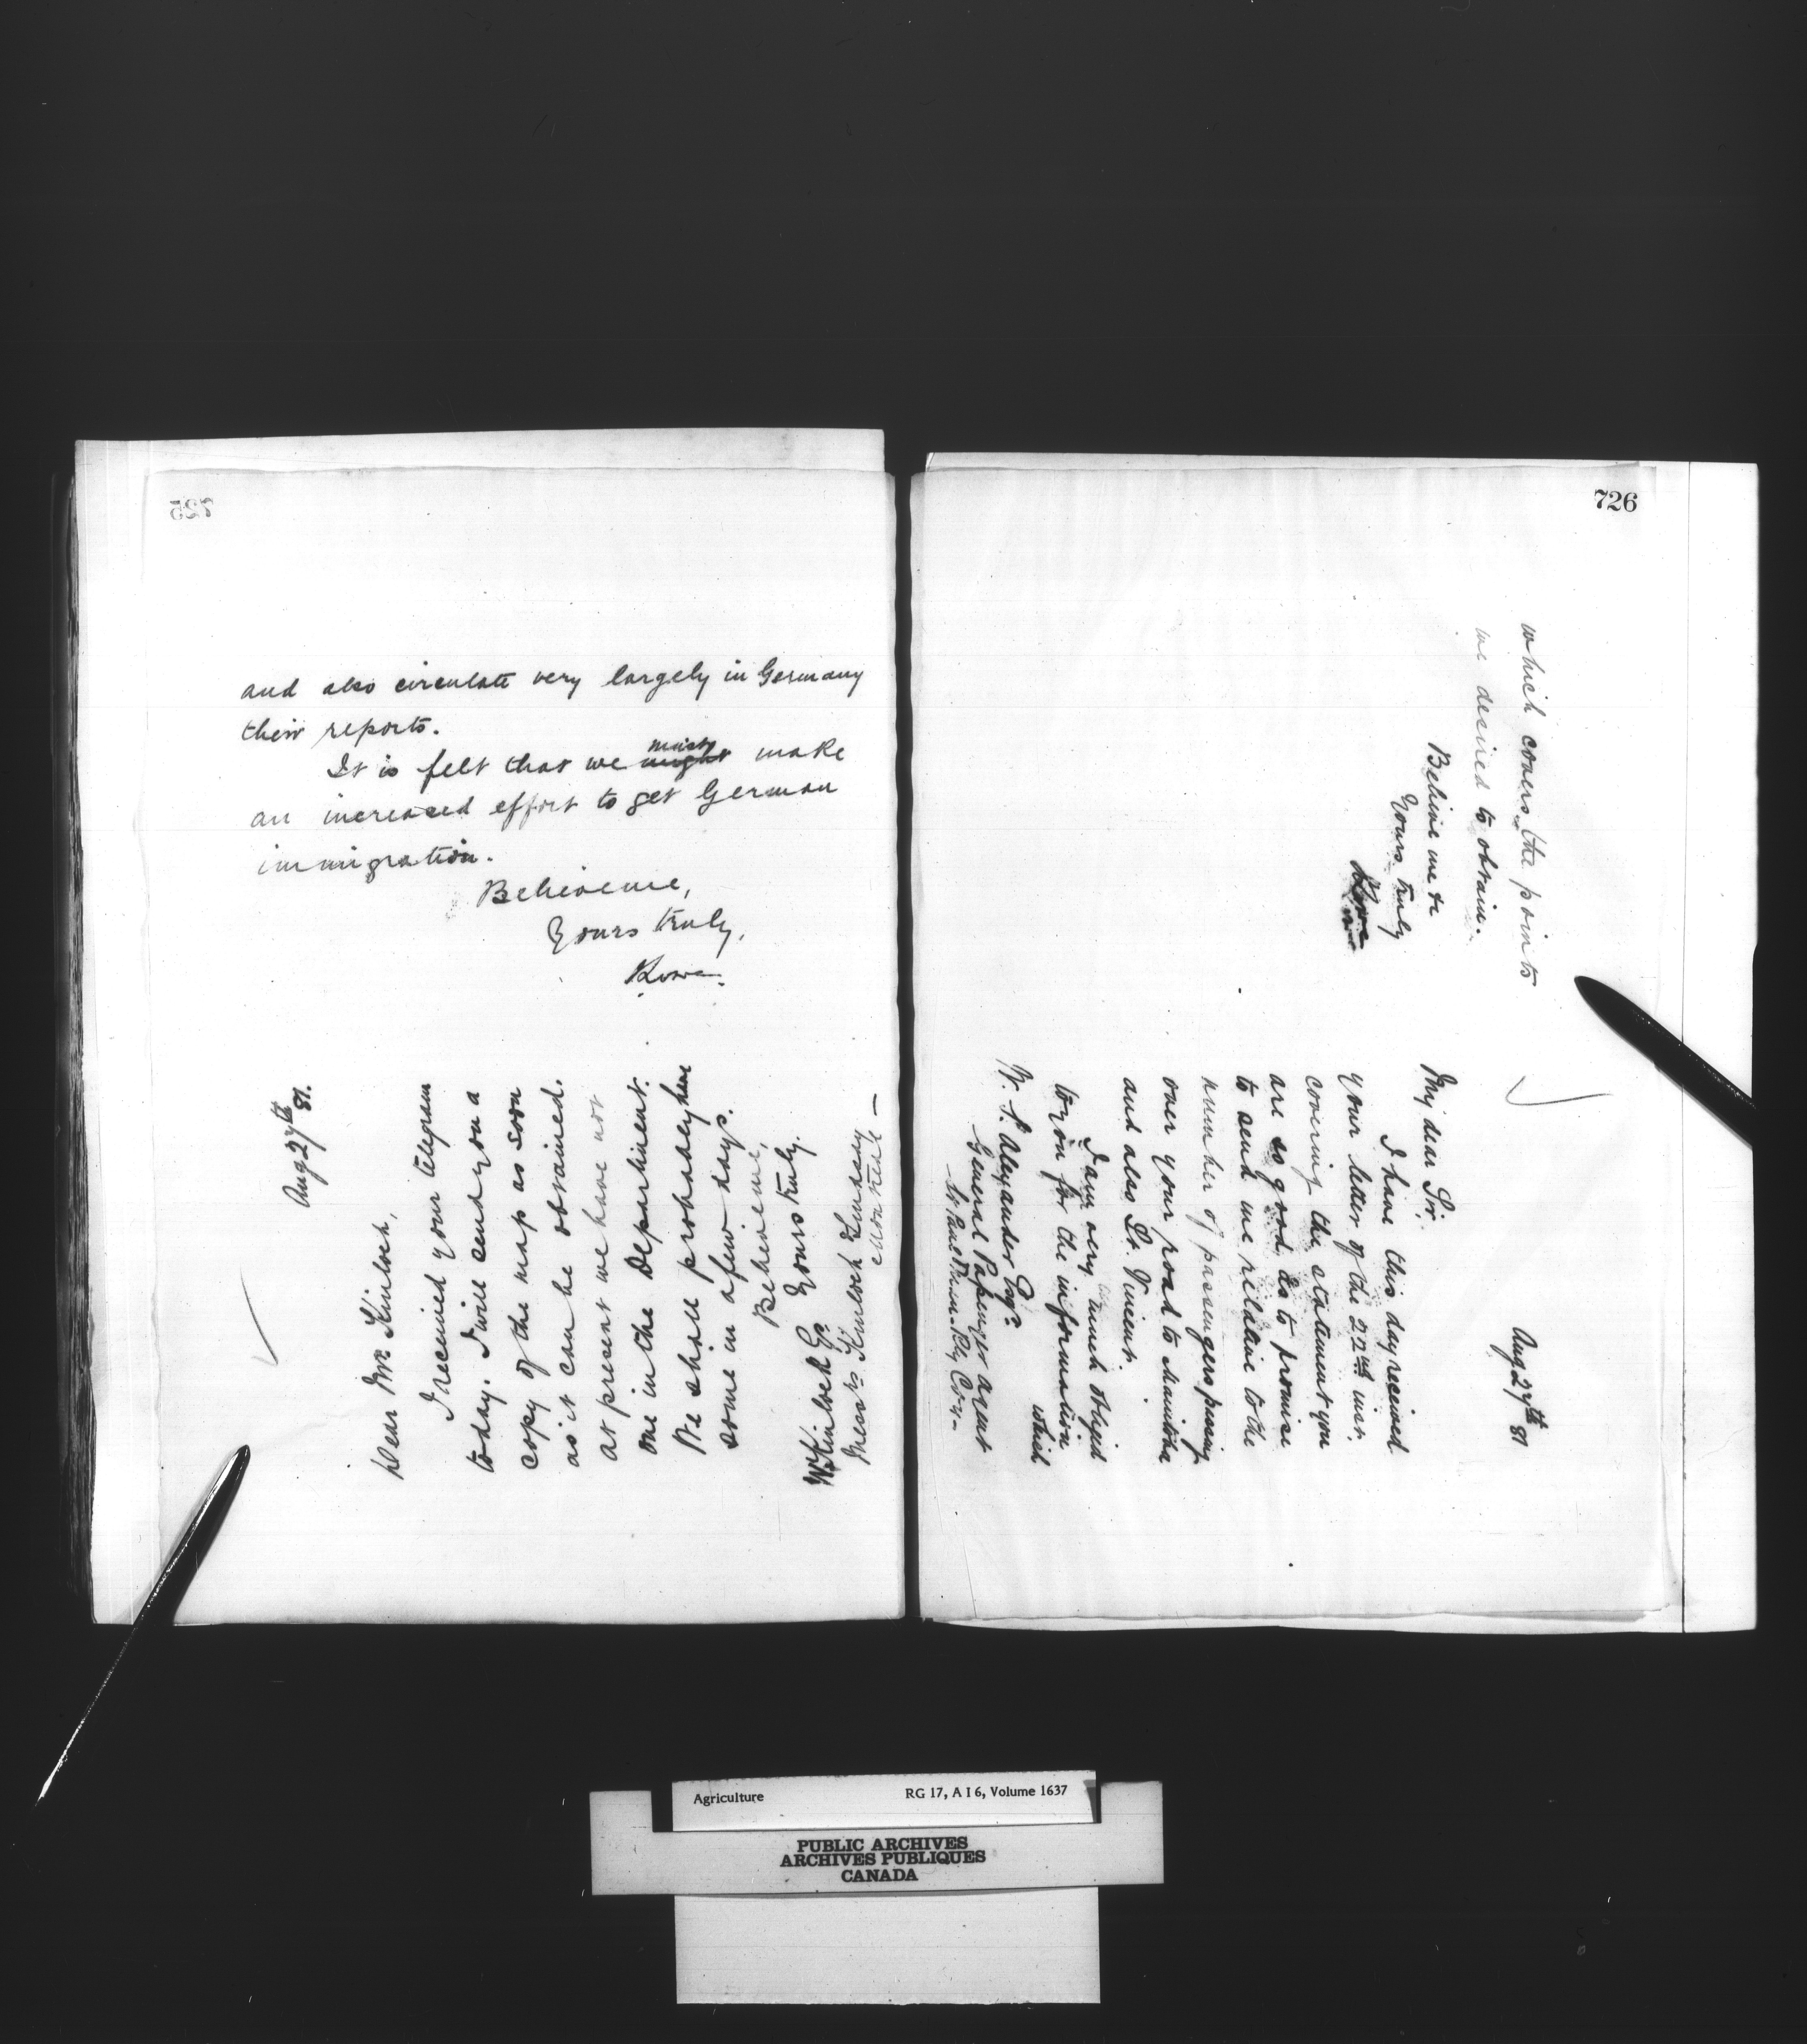 725
and also circulate very largely in Germany
their reports.
It is felt that we might must make
an increased effort to get German
immigration.
Believe me,
Yours truly,
Aug 27th
81.
Dear Mr. Kinloch,
I received your telegram
today. I will send you a
copy of the map as soon
as it can be obtained.
At present we have not
one in the Department.
We shall probably have
some in a few days.
Believe me,
Yours truly.
W Kinloch Esq
Messrs Kinloch Lindsay
Montreal —
726
Aug 27th 81
My dear Sir.
I have this day received
your letter of the 22nd inst.
covering the statement you
are so good as to promise
to send me relative to the
number of passengers passing
over your road to Manitoba
and also St. Vincent.
I am very much obliged
to you for the information
which
W. S. Alexander Esqr.
General Passenger agent
St Paul Minn. Rly Coy—
which covers the points
we desired to obtain.
Believe me to
Yours truly
Agriculture RG 17, A I 6, Volume 1637
PUBLIC ARCHIVES
ARCHIVES PUBLIQUES
CANADA